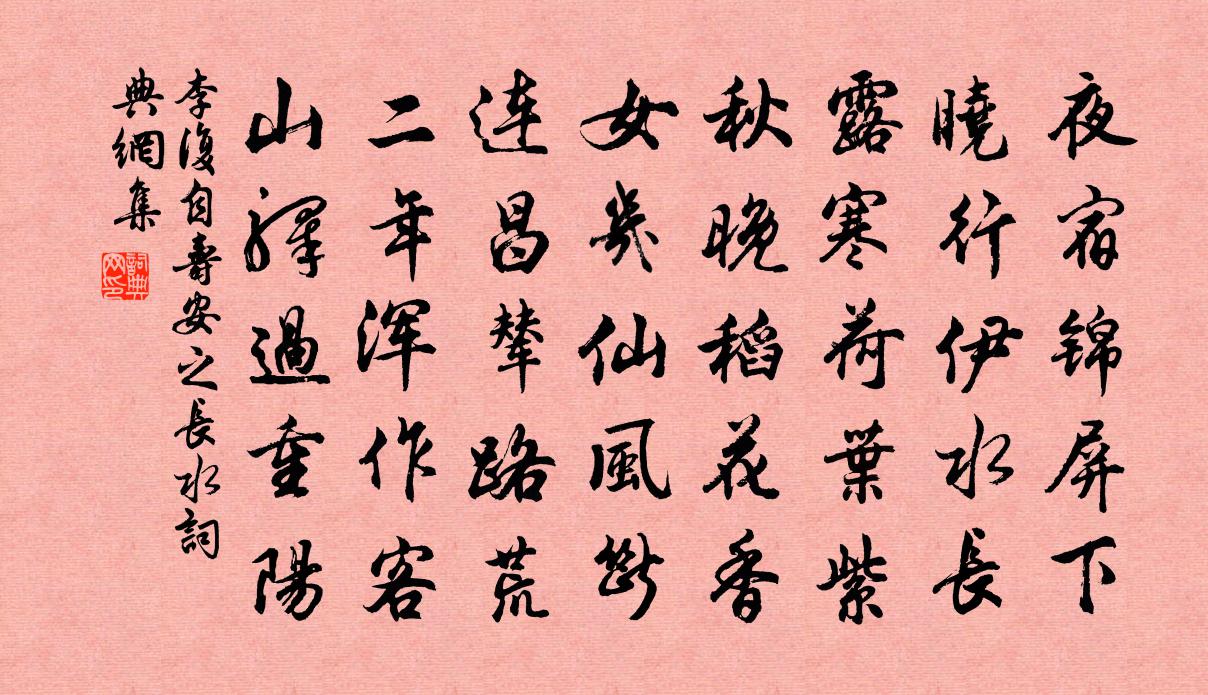 夜宿锦屏下
曉行伊水長
露寒荷葉紫
秋晚稻花香
女几仙風斷
連昌輦路荒
二年渾作客
山驛過重陽
李復自壽安之長水詞
典網集
詞典
网印